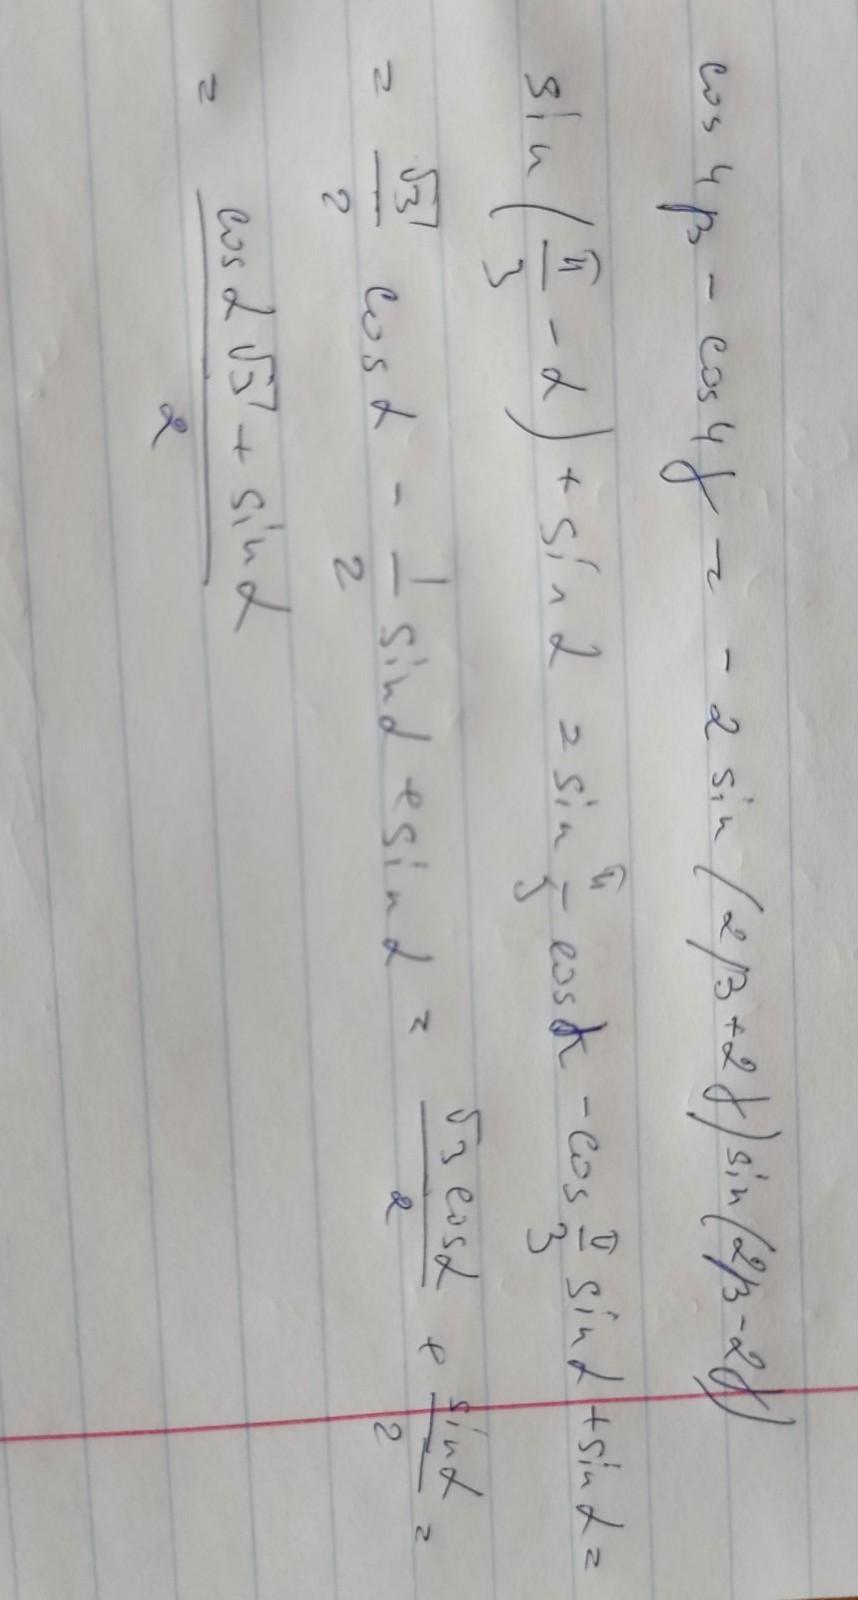 cos 4β - cos 4γ = - 2 sin (2β + 2γ) sin (2β - 2γ)
sin (π/3 - α) + sin α = sin π/3 cos α - cos π/3 sin α + sin α =
= √3/2 cos α - 1/2 sin α + sin α = √3 cos α/2 + sin α/2 =
= cos α √3 + sin α/2